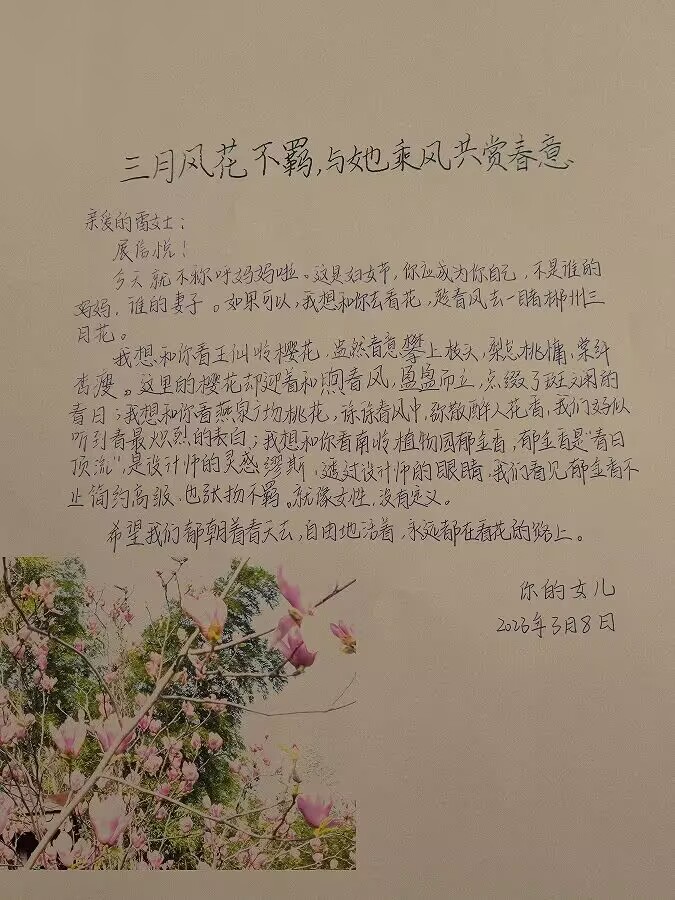 三月风花不羁,与她乘风共赏春意
亲爱的雷女士:
展信悦!
今天就不称呼妈妈啦。这是妇女节,你应成为你自己,不是谁的
妈妈,谁的妻子。如果可以,我想和你去看花,趁春风去一睹郴州三
月花。
我想和你看王仙岭樱花,盎然春意攀上枝头,梨怠桃慵,棠纤
杏瘦。这里的樱花却迎着和煦春风,盈盈而立,点缀了斑斓的
春日;我想和你看燕泉广场桃花,徐徐春风中,弥散醉人花香,我们好似
听到春最炽烈的表白;我想和你看南岭植物园郁金香,郁金香是“春日
顶流”,是设计师的灵感缪斯,透过设计师的眼睛,我们看见郁金香不
止简约高级,也张扬不羁。就像女性,没有定义。
希望我们都朝着春天去,自由地活着,永远都在看花的路上。
你的女儿
2023年3月8日